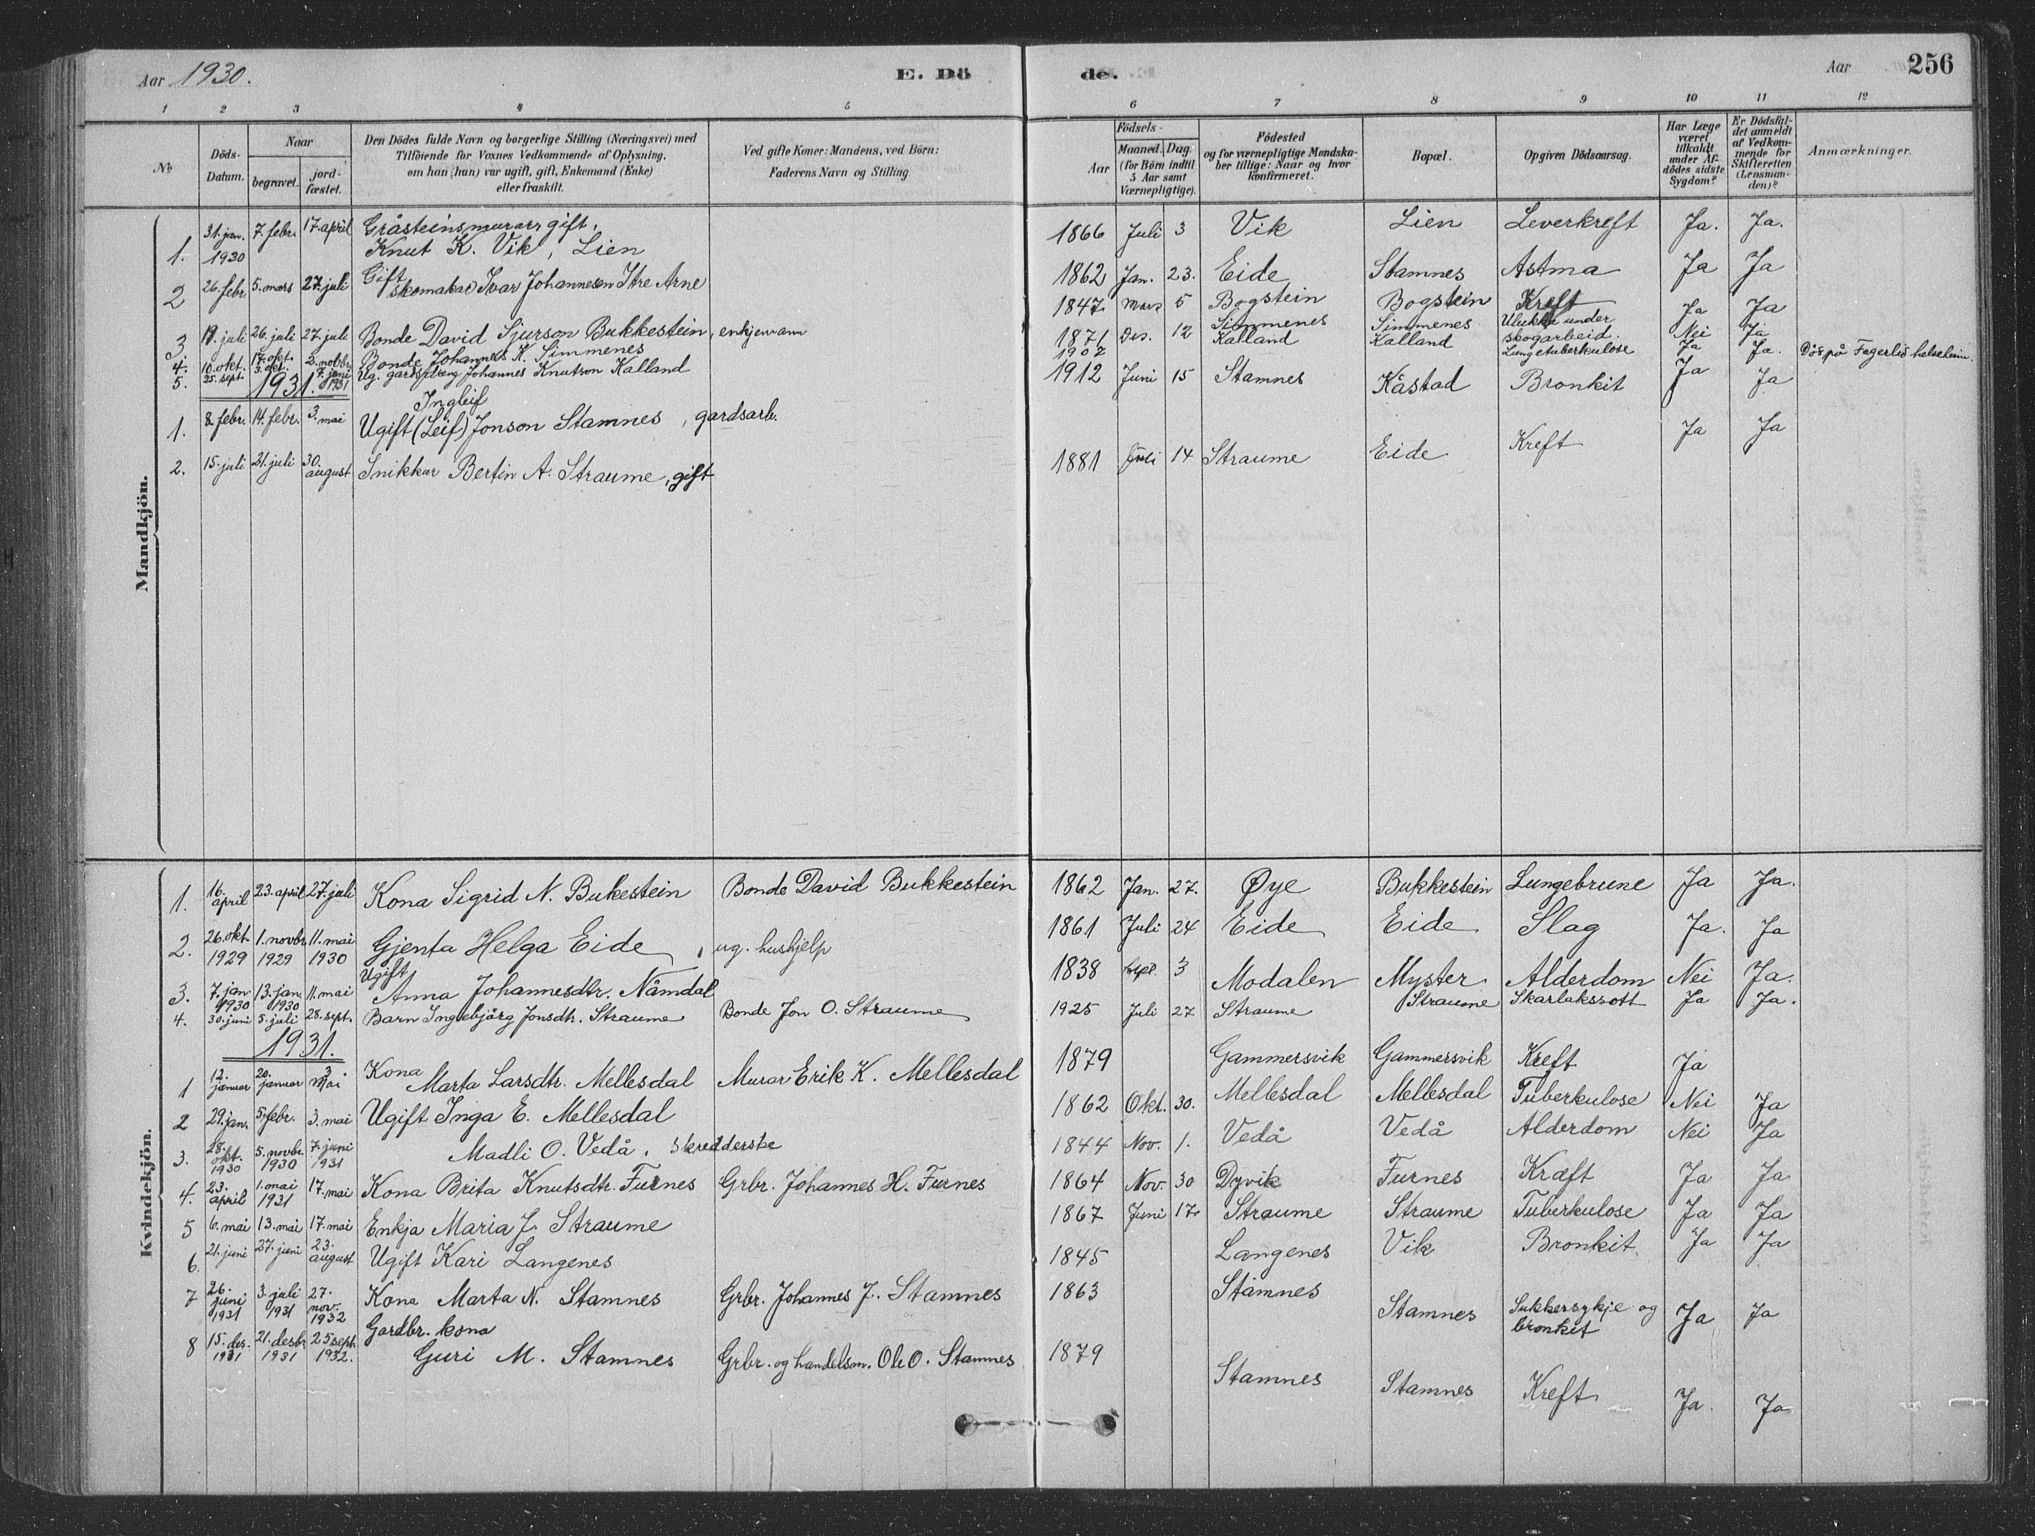 Aar 1930.
E. Dö
de.
Aar
256
1 2 3 4 5 6 7 8 9 10 11 12
No
Döds-Datum.
Naar
begravet.
jordfæstet.
Den Dödes fulde Navn og borgerlige Stilling (Næringsvei) med
Tilföiende for Voxnes Vedkommende af Oplysning,
om han (hun) var ugift, gift, Enkemand (Enke)
eller fraskilt.
Ved gifte Koner: Mandens, ved Börn:
Faderens Navn og Stilling
Födsels-
Aar
Maaned. Dag.
(for Börn indtil
5 Aar samt
Værnepligtige).
Födested
og for værnepligtige Mandska-
ber tillige: Naar og hvor
konfirmeret.
Bopæl.
Opgiven Dödsaarsag.
Har Læge
været
tilkaldt
under Af-
dödes sidste
Sygdom?
Er Dödsfal-
det anmeldt
af Vedkom-
mende for
Skifteretten
(Lensman-
den)?
Anmærkninger.
Mandkjön.
1. 31. jan. 1930 7. febr. 17. april Gråsteinsmurar, gift, Knut K. Vik, Lien 1866 Juli 3 Vik Lien Leverkreft Ja. Ja.
2 26. febr. 5. mars 27. juli Gift skomakar Ivar Johannesen Itre Arne 1862 Jan. 23. Eide Stamnes Astma Ja Ja
3 19. juli 26. juli 27. juli Bonde David Sjurson Bukkestein, enkjemann 1847 Mars 5 Bogstein Bogstein Kreft Ja Ja
4. 10. okt. 17. okt. 2. novbr. Bonde Johannes K. Simmenes 1871 Des. 12 Simmenes Simmenes Ulukke under skogarbeid Nei Ja
5. 25. sept. 3. okt. 7. juni 1931 Ug. gardsdreng Johannes Knutson Kalland 1907 Kalland Kalland Lungetuberkulose Ja Ja. Dös på Fagerlid
1931.
1. 8. febr. 14. febr. 3. mai Ugift Ingleif (Leif) Jonson Stamnes, gardsarb. 1912 Juni 15 Stamnes Kåstad Bronkit Ja Ja
2. 15. juli 21. juli 30. august Snikkar Bertin A. Straume, gift 1881 Juli 14 Straume Eide Kreft Ja Ja
Kvindekjön.
1. 16. april 23. april 27. juli Kona Sigrid N. Bukestein Bonde David Bukkestein 1862 Jan. 27. Øye Bukkestein Lungebrune Ja Ja.
2. 26. okt. 1929 1. novbr. 1929 11. mai 1930 Gjenta Helga Eide, ug. hushjelp 1861 Juli 24 Eide Eide Slag Ja. Ja
3. 7. jan 1930 13. jan. 1930 11. mai Ugift Anna Johannesdtr. Nåmdal 1838 Sept. 3 Modalen Myster Alderdom Nei Ja.
4. 30. juni 5. juli 28. sept. Barn Ingebjörg Jonsdtr. Straume Bonde Jon O. Straume 1925 Juli 27 Straume Straume Skarlakssott Ja Ja.
1931.
1 12. januar 20. januar 3 mai Kona Marta Larsdtr. Mellesdal Murar Erik K. Mellesdal 1879 Gammersvik Gammersvik Kreft Ja
2 29. jan. 5. febr. 3. mai Ugift Inga E. Mellesdal 1862 Okt. 30. Mellesdal Mellesdal Tuberkulose Nei Ja
3. 28. okt. 1930 5. novbr. 1930 7. juni 1931 Madli O. Vedå, skredderske 1844 Nov. 1. Vedå Vedå Alderdom Nei Ja
4. 23. april 1. mai 1931 17. mai Kona Brita Knutsdtr. Furnes Grbr. Johannes H. Furnes 1864 Nov. 30 Dyvik Furnes Kræft Ja Ja
5 6. mai 13. mai 17. mai Enkja Maria J. Straume 1867 Juni 17. Straume Straume Tuberkulose Ja Ja
6. 21. juni 27. juni 23. august Ugift Kari Langenes 1845 Langenes Vik Bronkit. Ja Ja
7 26. juni 1931 3. juli 1931 27. nov. 1932 Kona Marta N. Stamnes Grbr. Johannes J. Stamnes 1863 Stamnes Stamnes Sukkersykje og bronkit Ja Ja
8 15. des. 1931 21. desbr 1931 25 sept. 1932. Gardbr. kona Guri M. Stamnes Grbr. og handelsm. Ole O. Stamnes 1879 Stamnes Stamnes Kreft Ja. Ja